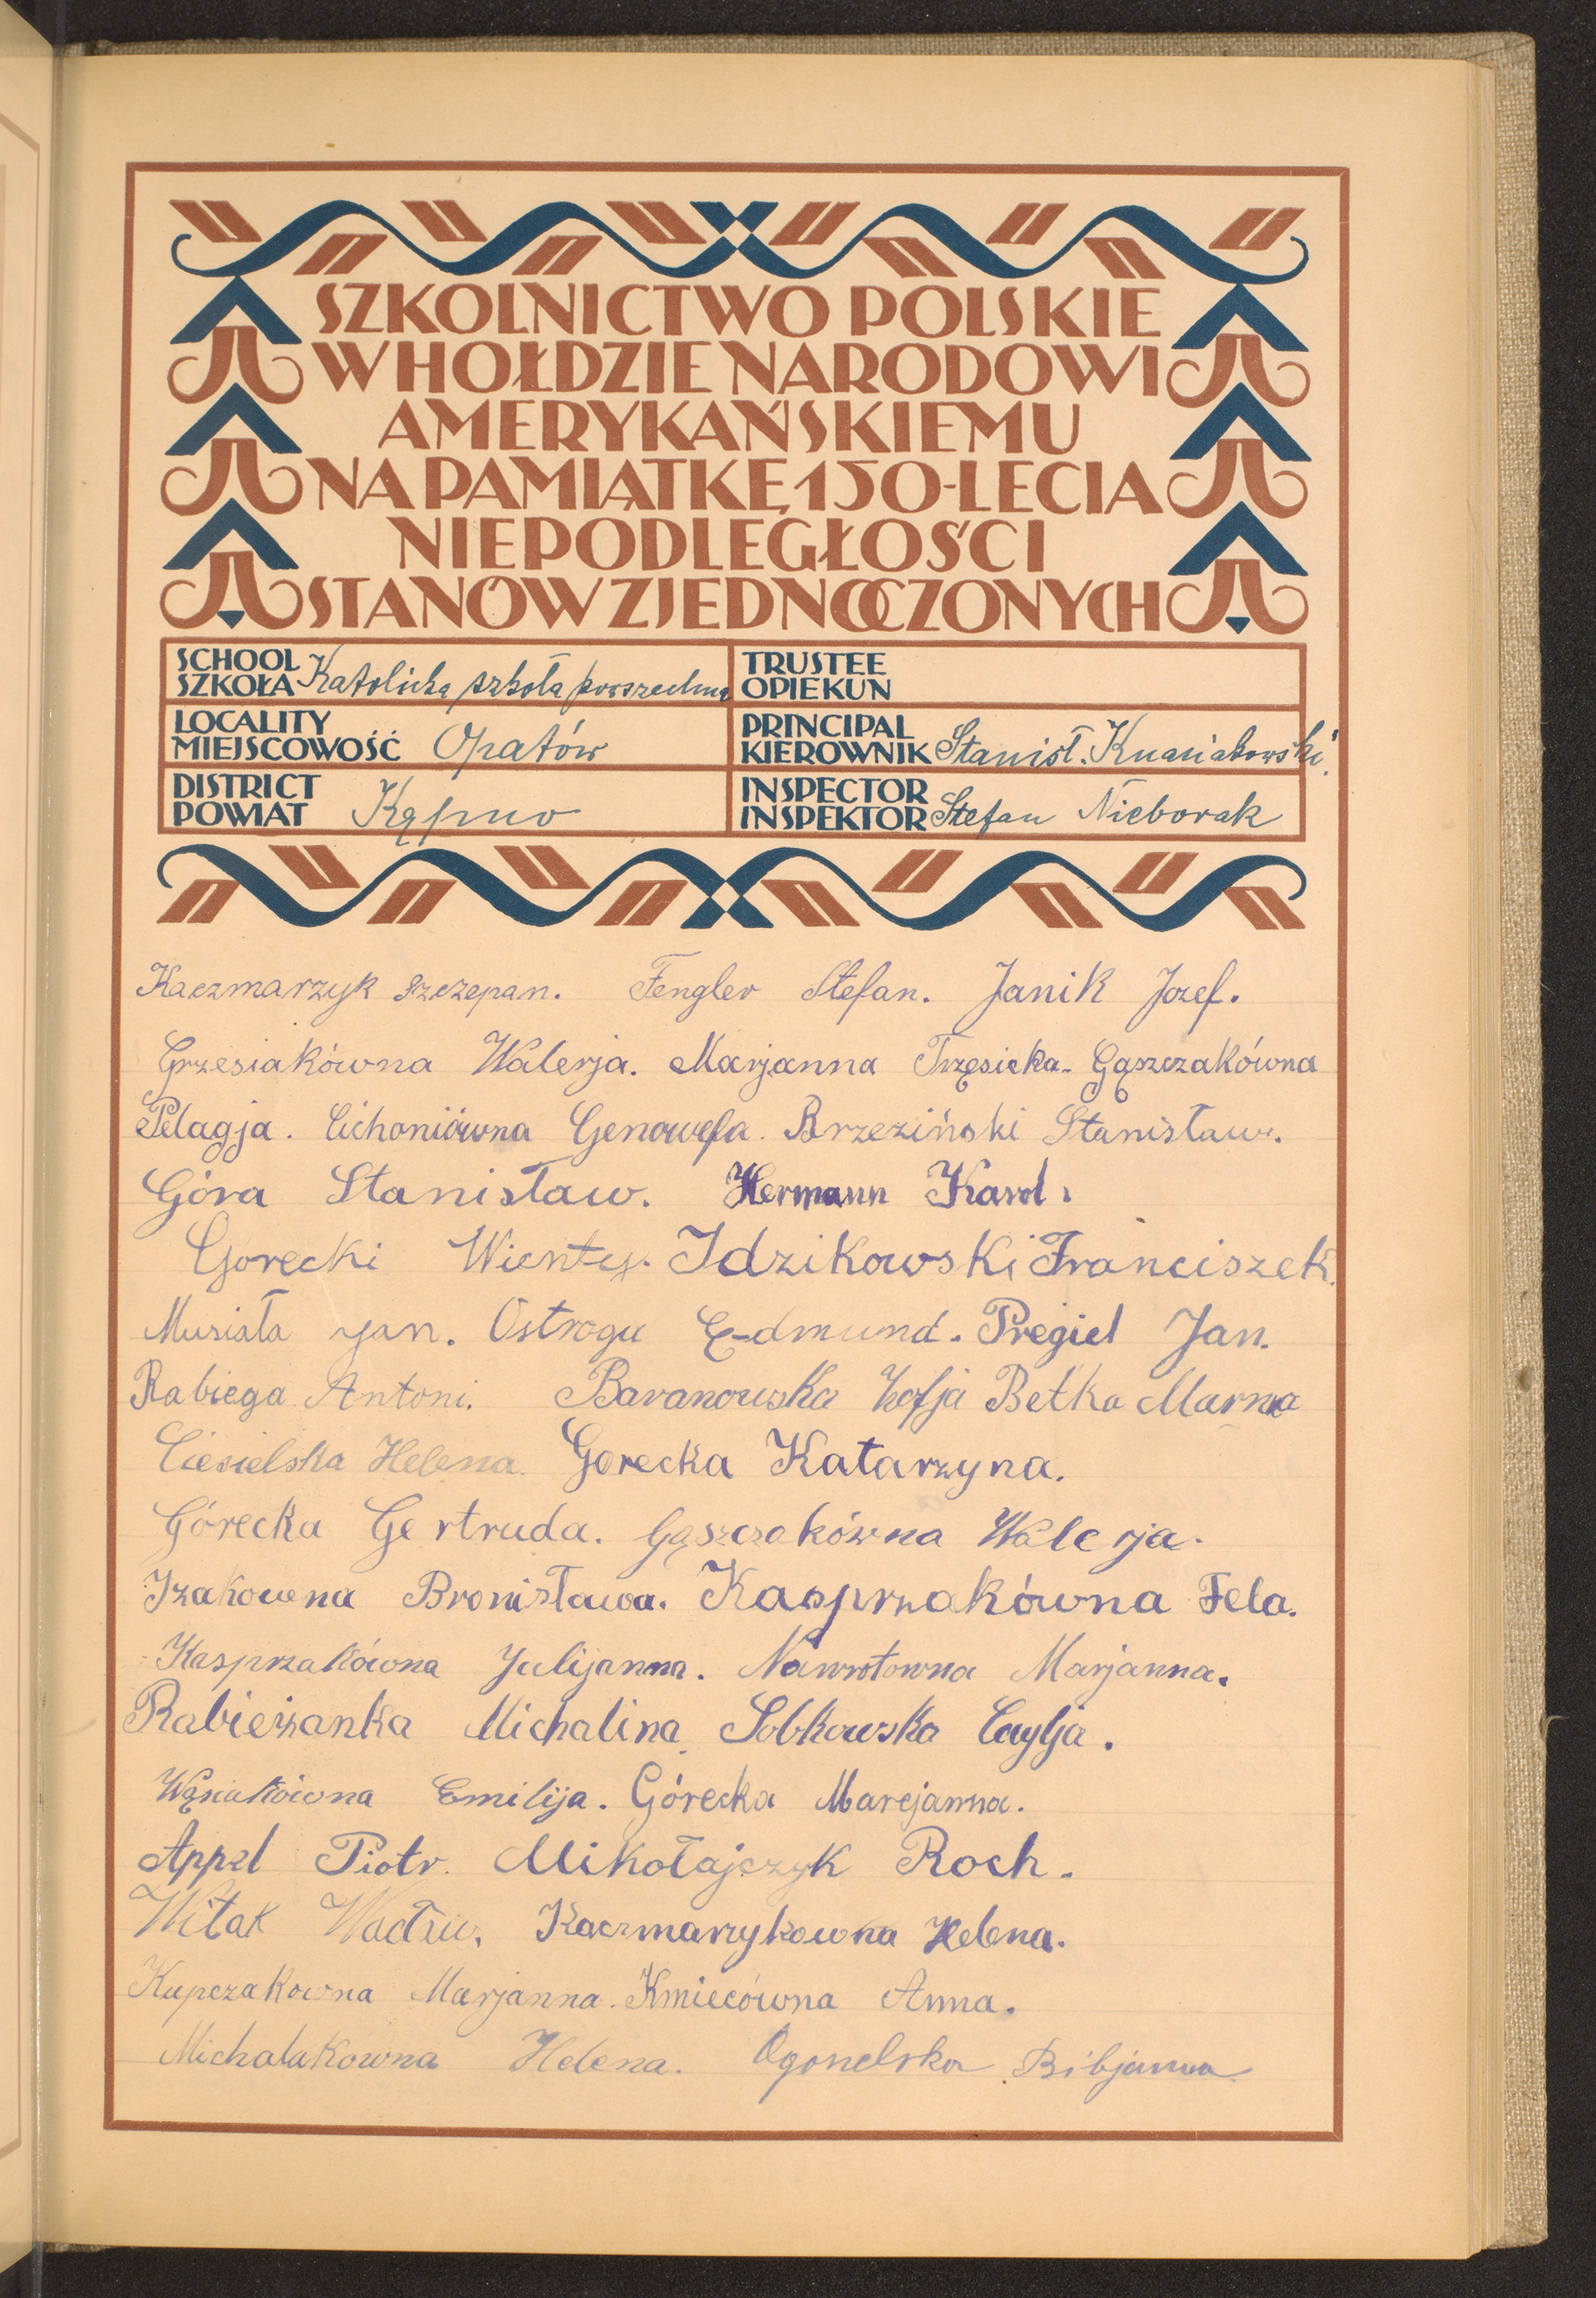 SZKOLNICTWO POLSKIE
W HOŁDZIE NARODOWI
AMERYKAŃSKIEMU
NA PAMIĄTKĘ 150-LECIA
NIEPODLEGŁOŚCI
STANÓW ZJEDNOCZONYCH
SCHOOL SZKOŁA Katolicka szkoła powszechna
TRUSTEE OPIEKUN
LOCALITY MIEJSCOWOŚĆ Opatów
PRINCIPAL KIEROWNIK Stanisł.
DISTRICT POWIAT Kępno
INSPECTOR INSPEKTOR Stefan Nieborak
Kaczmarzyk Szczepan. Fengler Stefan. Janik Jozef.
Grzesiakówna Walerja. Marjanna Trzęsicka. Gąszczakówna
Pelagja. Cichoniówna Genowefa. Brzeziński Stanisław.
Góra Stanisław. Hermann Karol.
Gorecki Wienty. Idzikowski Franciszek.
Musiała Jan. Ostroga Edmund. Pregiel Jan.
Rabiega Antoni. Baranowska Zofja Betka
Ciesielska Helena. Gorecka Katarzyna.
Górecka Gertruda. Gąszczakówna Walerja.
Izakowna Bronisława. Kasprzakówna Fela.
Kasprzakówna Julijanna. Nawrotowna Marjanna.
Rabieżanka Michalina. Sobkowska
Wąsiakówna Emilija. Górecka Marejanna.
Appel Piotr. Mikołajczyk Roch.
Witak Wacław. Kaczmarzykowna Helena.
Kupczakowna Marjanna. Kmiecówna Anna.
Michalakowna Helena. Ogonelska Bibjanna